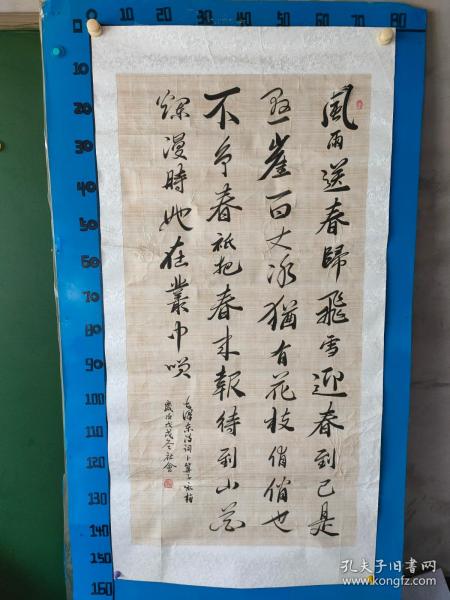 0 10 20 30 40 50 60 70 80
0
10
20
30
40
50
60
70
80
90
100
110
120
130
140
150
160
風雨送春歸飛雪迎春到已是
懸崖百丈冰猶有花枝俏俏也
不争春祇把春來報待到山花
爛漫時她在叢中咲
毛澤東詩詞卜算子咏梅
歲次戊戌冬社會
孔夫子旧书网
www.kongfz.com